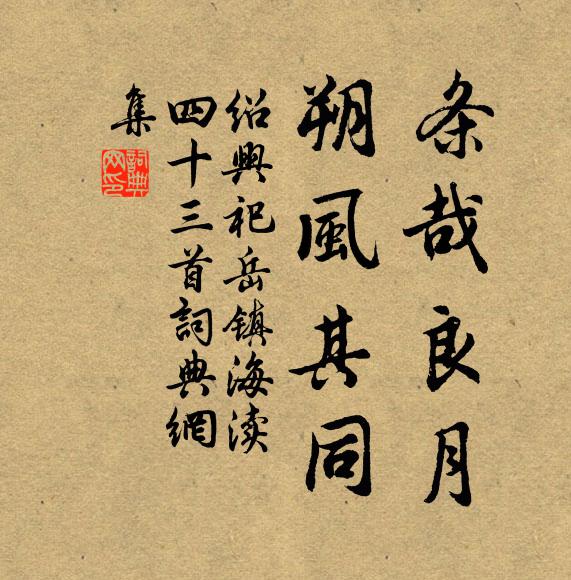 条哉良月
朔風其同
绍興祀岳镇海渎
四十三首詞典網
集
詞典网印